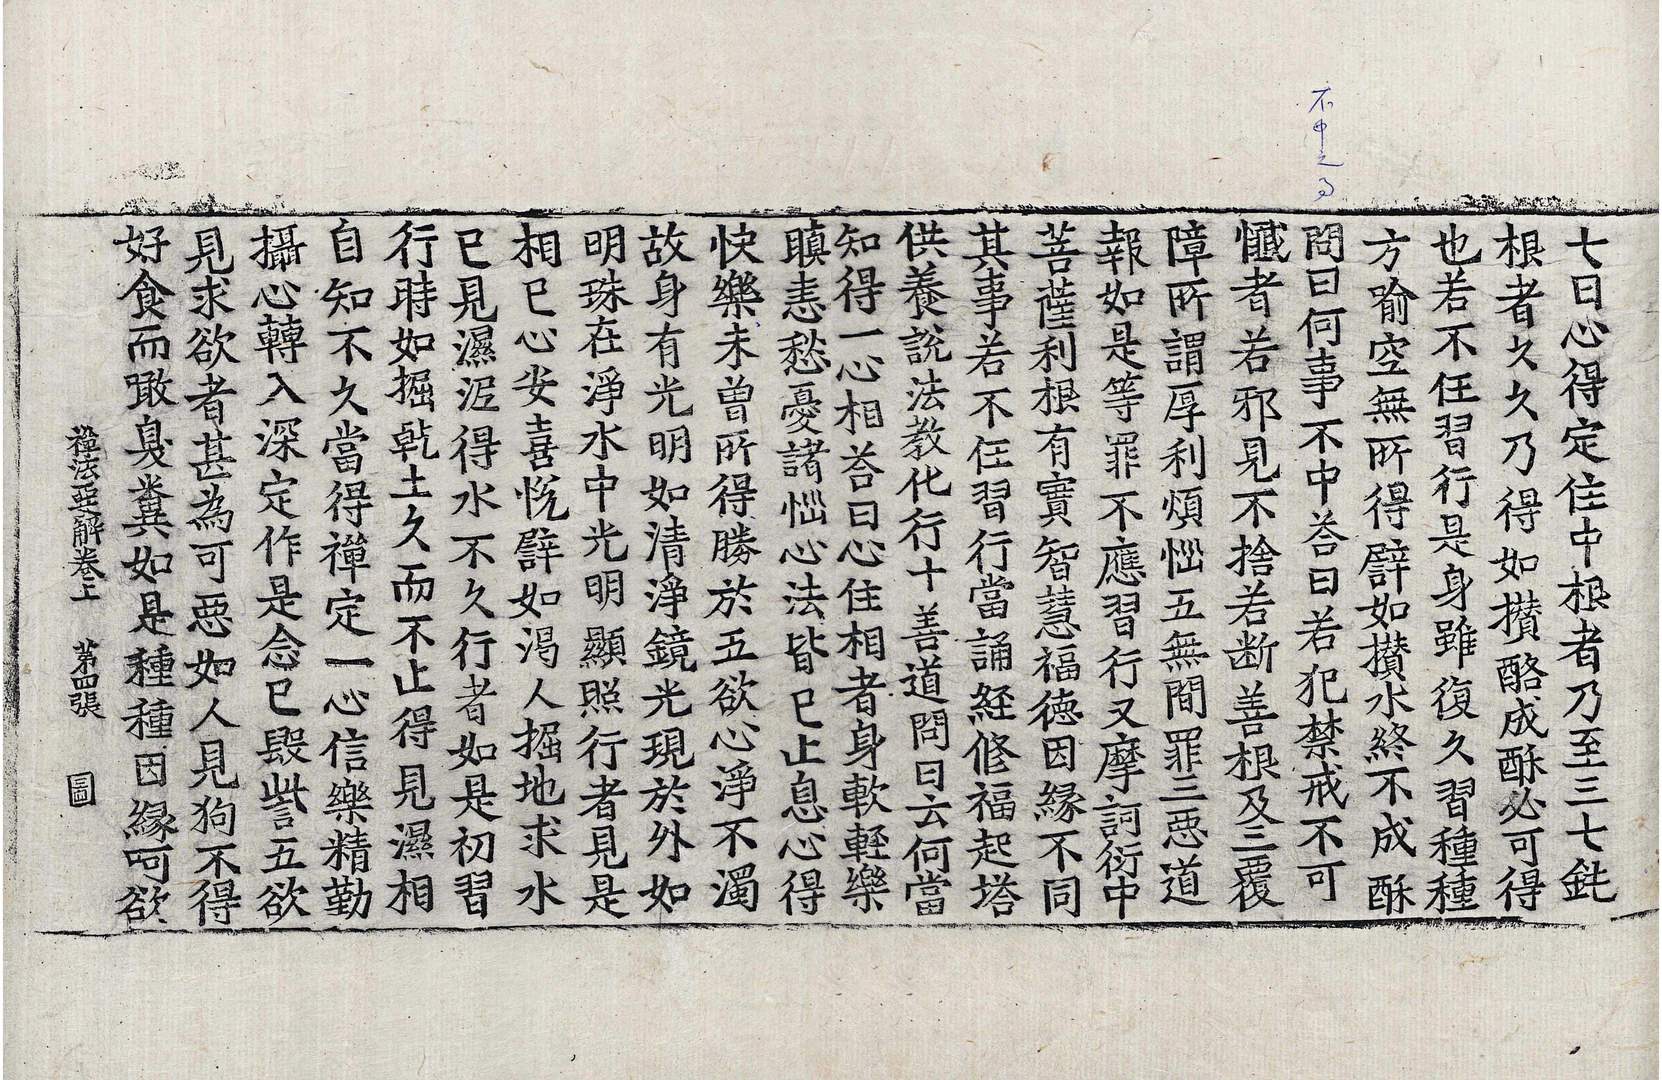 不中之了
七日心得定住中根者乃至三七鈍
根者久久乃得如攅酪成酥必可得
也若不任習行是身雖復久習種種
方喻空無所得譬如攅水終不成酥
問曰何事不中荅曰若犯禁戒不可
懺者若邪見不捨若断善根及三覆
障所謂厚利煩惱五無間罪三惡道
報如是等罪不應習行又摩訶衍中
菩薩利根有實智慧福德因緣不同
其事若不任習行當誦経修福起塔
供養說法教化行十善道問曰云何當
知得一心相荅曰心住相者身軟輕樂
瞋恚愁憂諸惱心法皆已止息心得
快樂未曽所得勝於五欲心淨不濁
故身有光明如清淨鏡光現於外如
明珠在淨水中光明顯照行者見是
相已心安喜悅譬如渴人掘地求水
已見濕泥得水不久行者如是初習
行時如掘乹土久而不止得見濕相
自知不久當得禪定一心信樂精勤
攝心轉入深定作是念已毀訾五欲
見求欲者甚為可惡如人見狗不得
好食而噉臭糞如是種種因緣呵欲
禪法要解卷上 第四張 圖